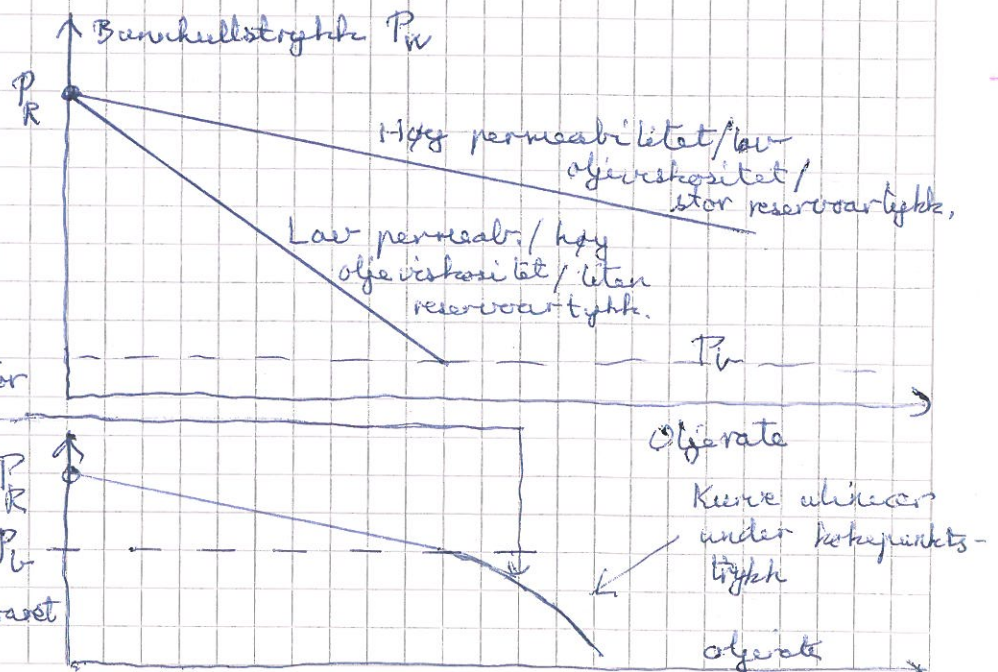 Bunnhullstrykk P_w
P_R
Høy permeabilitet/lav
oljeviskositet/
stor reservoartykk.
Lav permeab./høy
oljeviskositet/liten
reservoartykk.
P_b
or
Oljerate
P_R
Kurve ulineær
under kokepunkts-
trykk
P_b
aret
oljerate